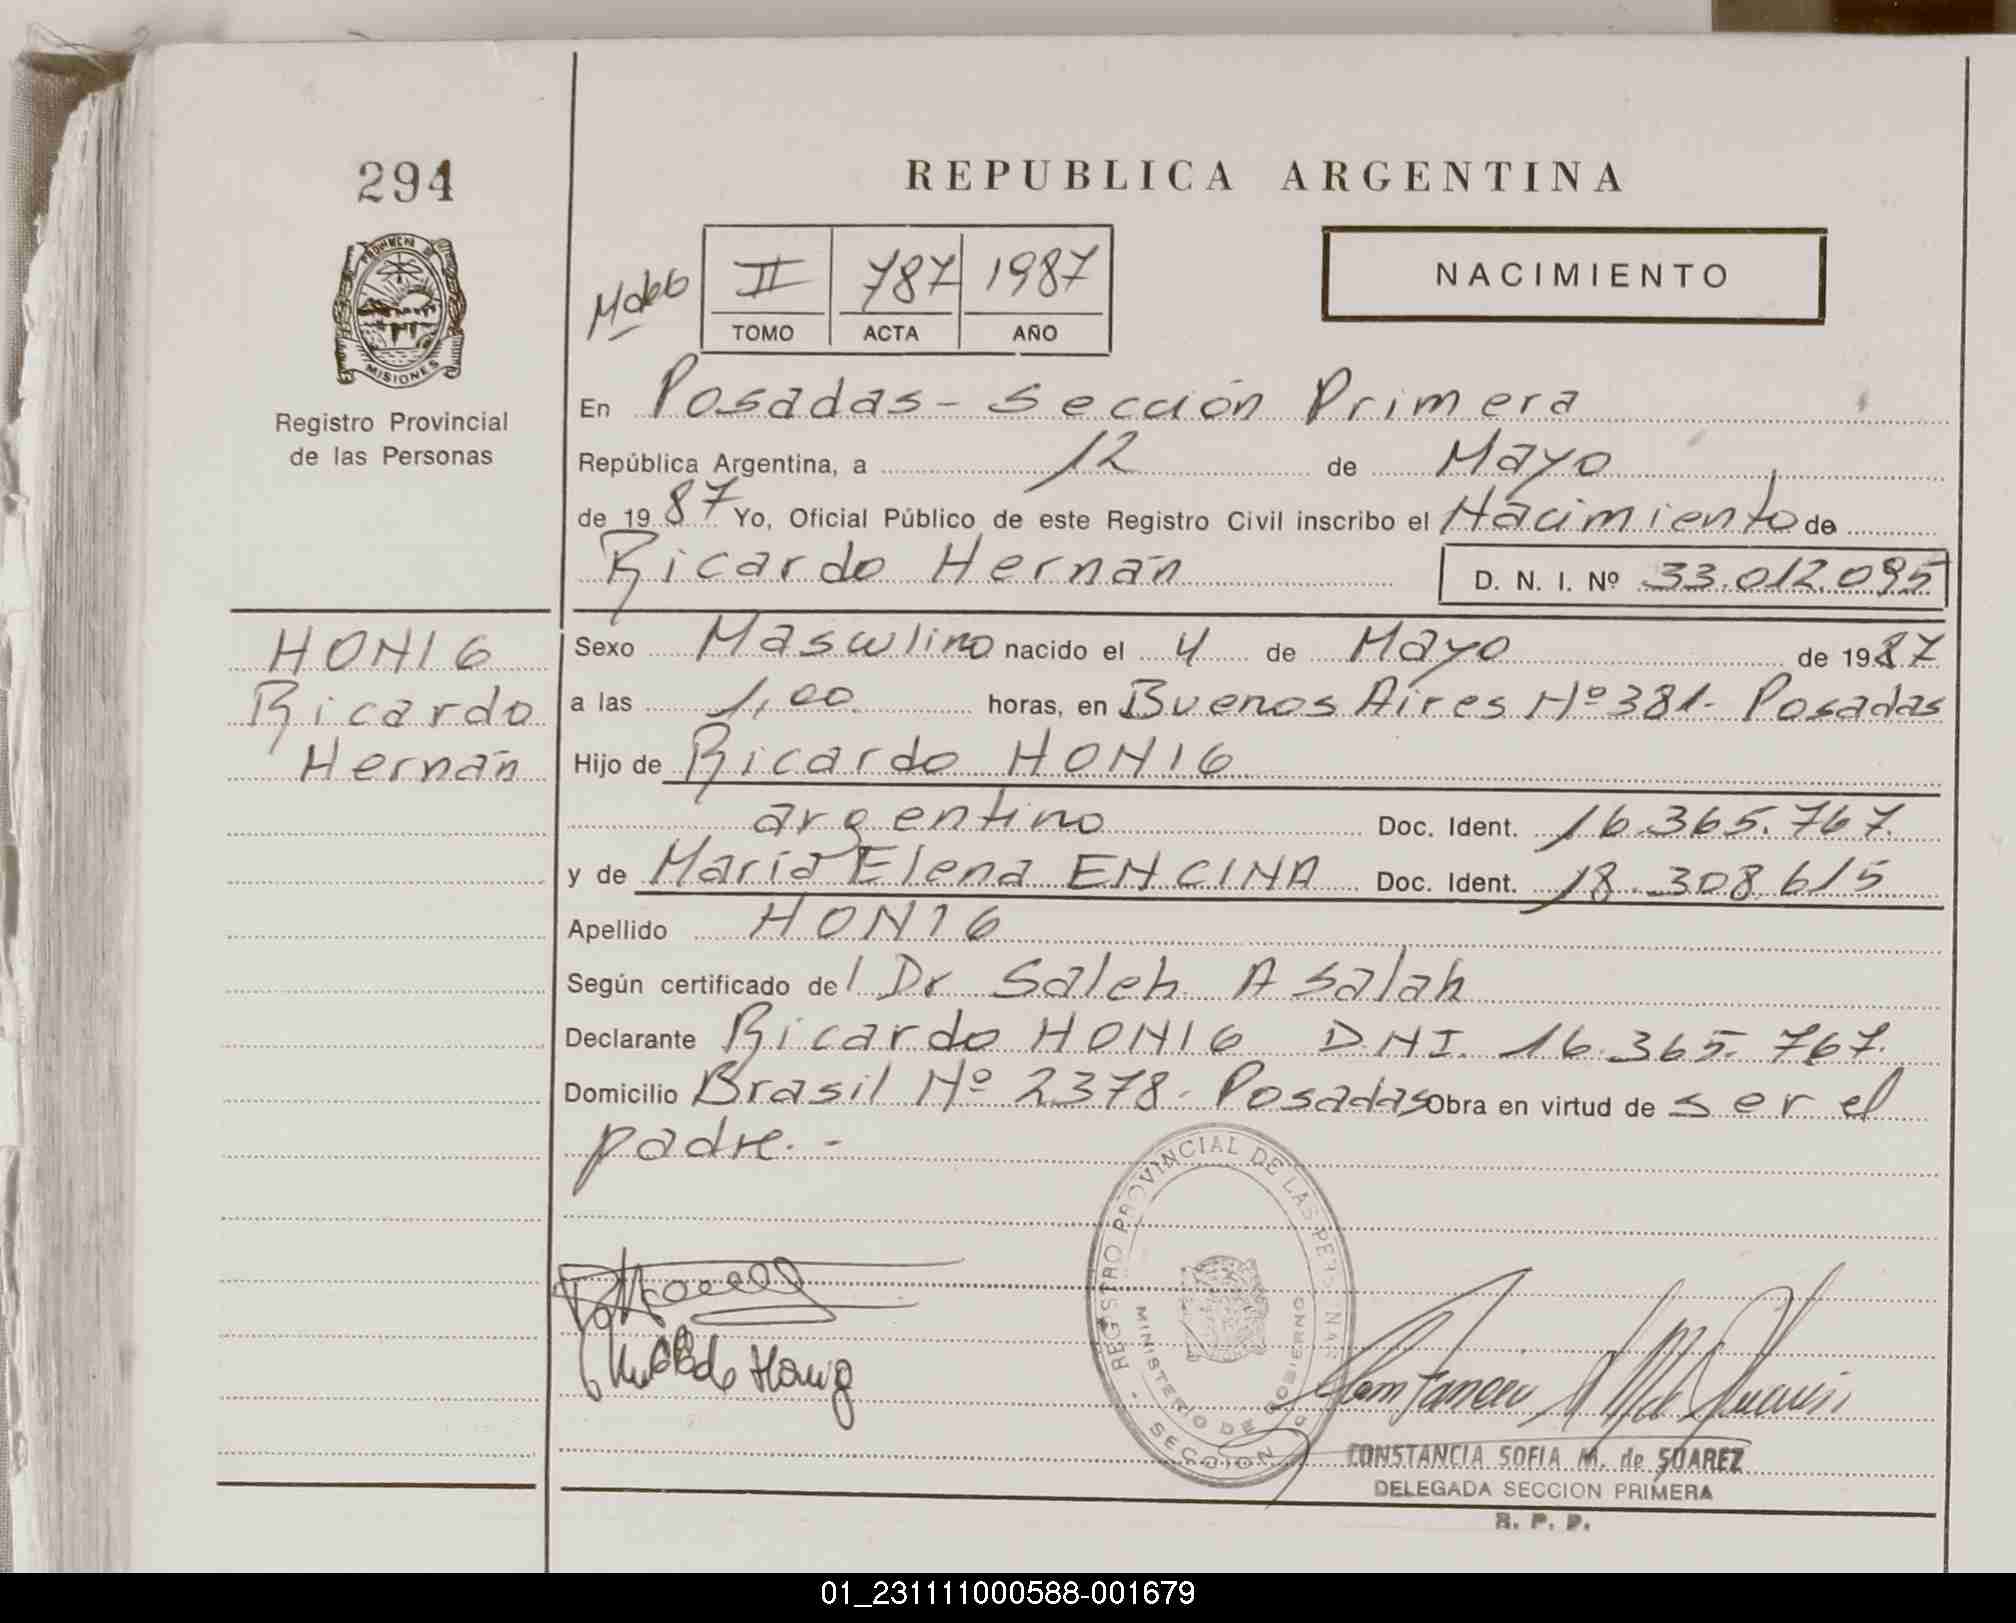 294
REPUBLICA ARGENTINA
II 787 1987
TOMO ACTA AÑO
NACIMIENTO
PROVINCIA DE
MISIONES
Registro Provincial
de las Personas
En Posadas - Sección Primera
República Argentina, a 12 de Mayo
de 1987 Yo, Oficial Público de este Registro Civil inscribo el Nacimiento de
Ricardo Hernán D. N. I. Nº 33.012.095
HONIG
Ricardo
Hernán
Sexo Masculino nacido el 4 de Mayo de 1987
a las 1,00 horas, en Buenos Aires Nº 381 - Posadas
Hijo de Ricardo HONIG
argentino Doc. Ident. 16.365.767.
y de María Elena ENCINA Doc. Ident. 18.308.615
Apellido HONIG
Según certificado del Dr Saleh A Salah
Declarante Ricardo HONIG D.N.I. 16.365.767.
Domicilio Brasil Nº 2378 - Posadas Obra en virtud de ser el
padre. -
REGISTRO PROVINCIAL DE LAS PERSONAS
MINISTERIO DE GOBIERNO
SECCION
Honig
CONSTANCIA SOFIA M. de SUAREZ
DELEGADA SECCION PRIMERA
R. P. P.
01_231111000588-001679